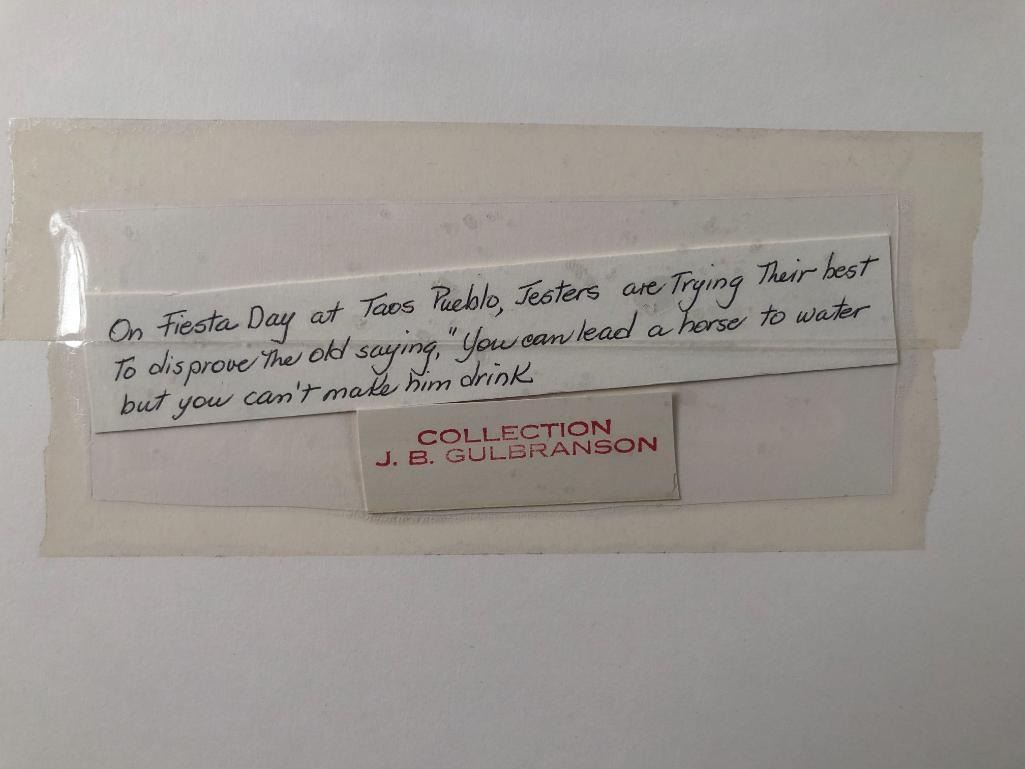 On Fiesta Day at Taos Pueblo, Jesters are Trying Their best
To disprove The old saying, "You can lead a horse to water
but you can't make him drink
COLLECTION
J. B. GULBRANSON